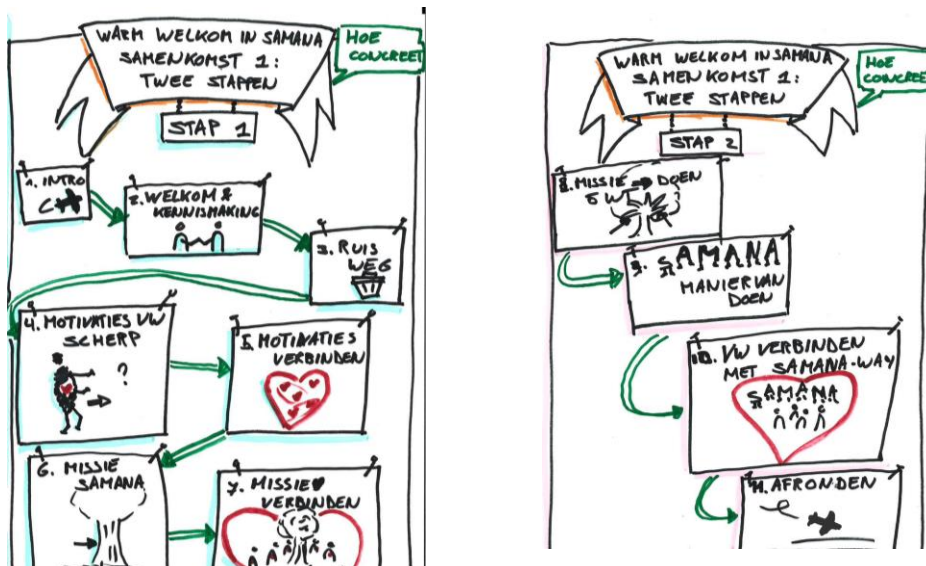 WARM WELKOM IN SAMANA
SAMENKOMST 1:
TWEE STAPPEN
HOE
CONCREET
STAP 1
1. INTRO
2. WELKOM &
KENNISMAKING
3. RUIS
WEG
4. MOTIVATIES VW
SCHERP
?
5. MOTIVATIES
VERBINDEN
6. MISSIE
SAMANA
7. MISSIE
VERBINDEN
WARM WELKOM IN SAMANA
SAMENKOMST 1:
TWEE STAPPEN
HOE
CONCREET
STAP 2
8. MISSIE → DOEN
5 W
9. SAMANA
MANIER VAN
DOEN
10. VW VERBINDEN
MET SAMANA-WAY
SAMANA
11. AFRONDEN